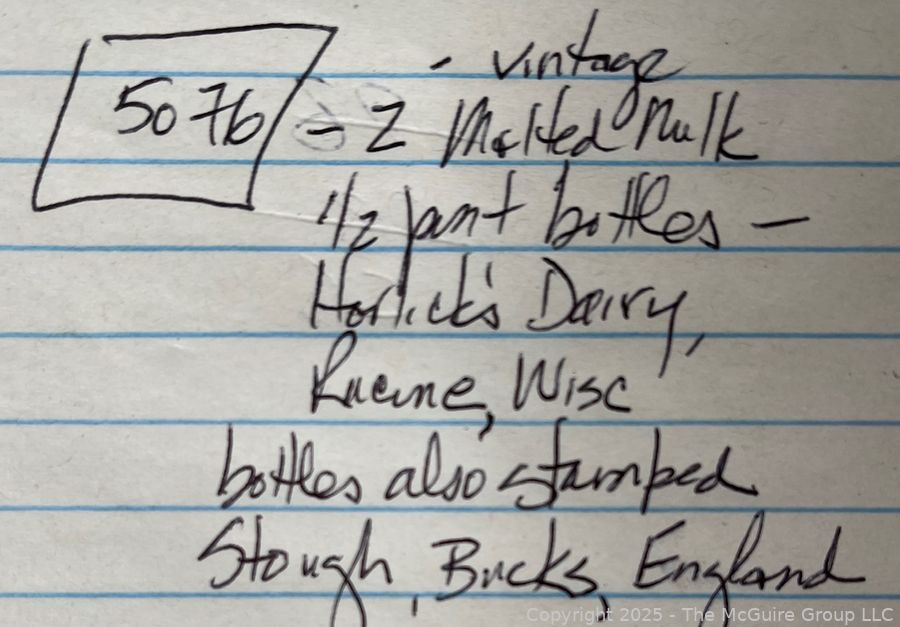 - vintage
5076 - 2 Malted Milk
1/2 pint bottles -
Horlick's Dairy,
Racine, Wisc
bottles also stamped
Slough, Bucks, England
Copyright 2025 - The McGuire Group LLC